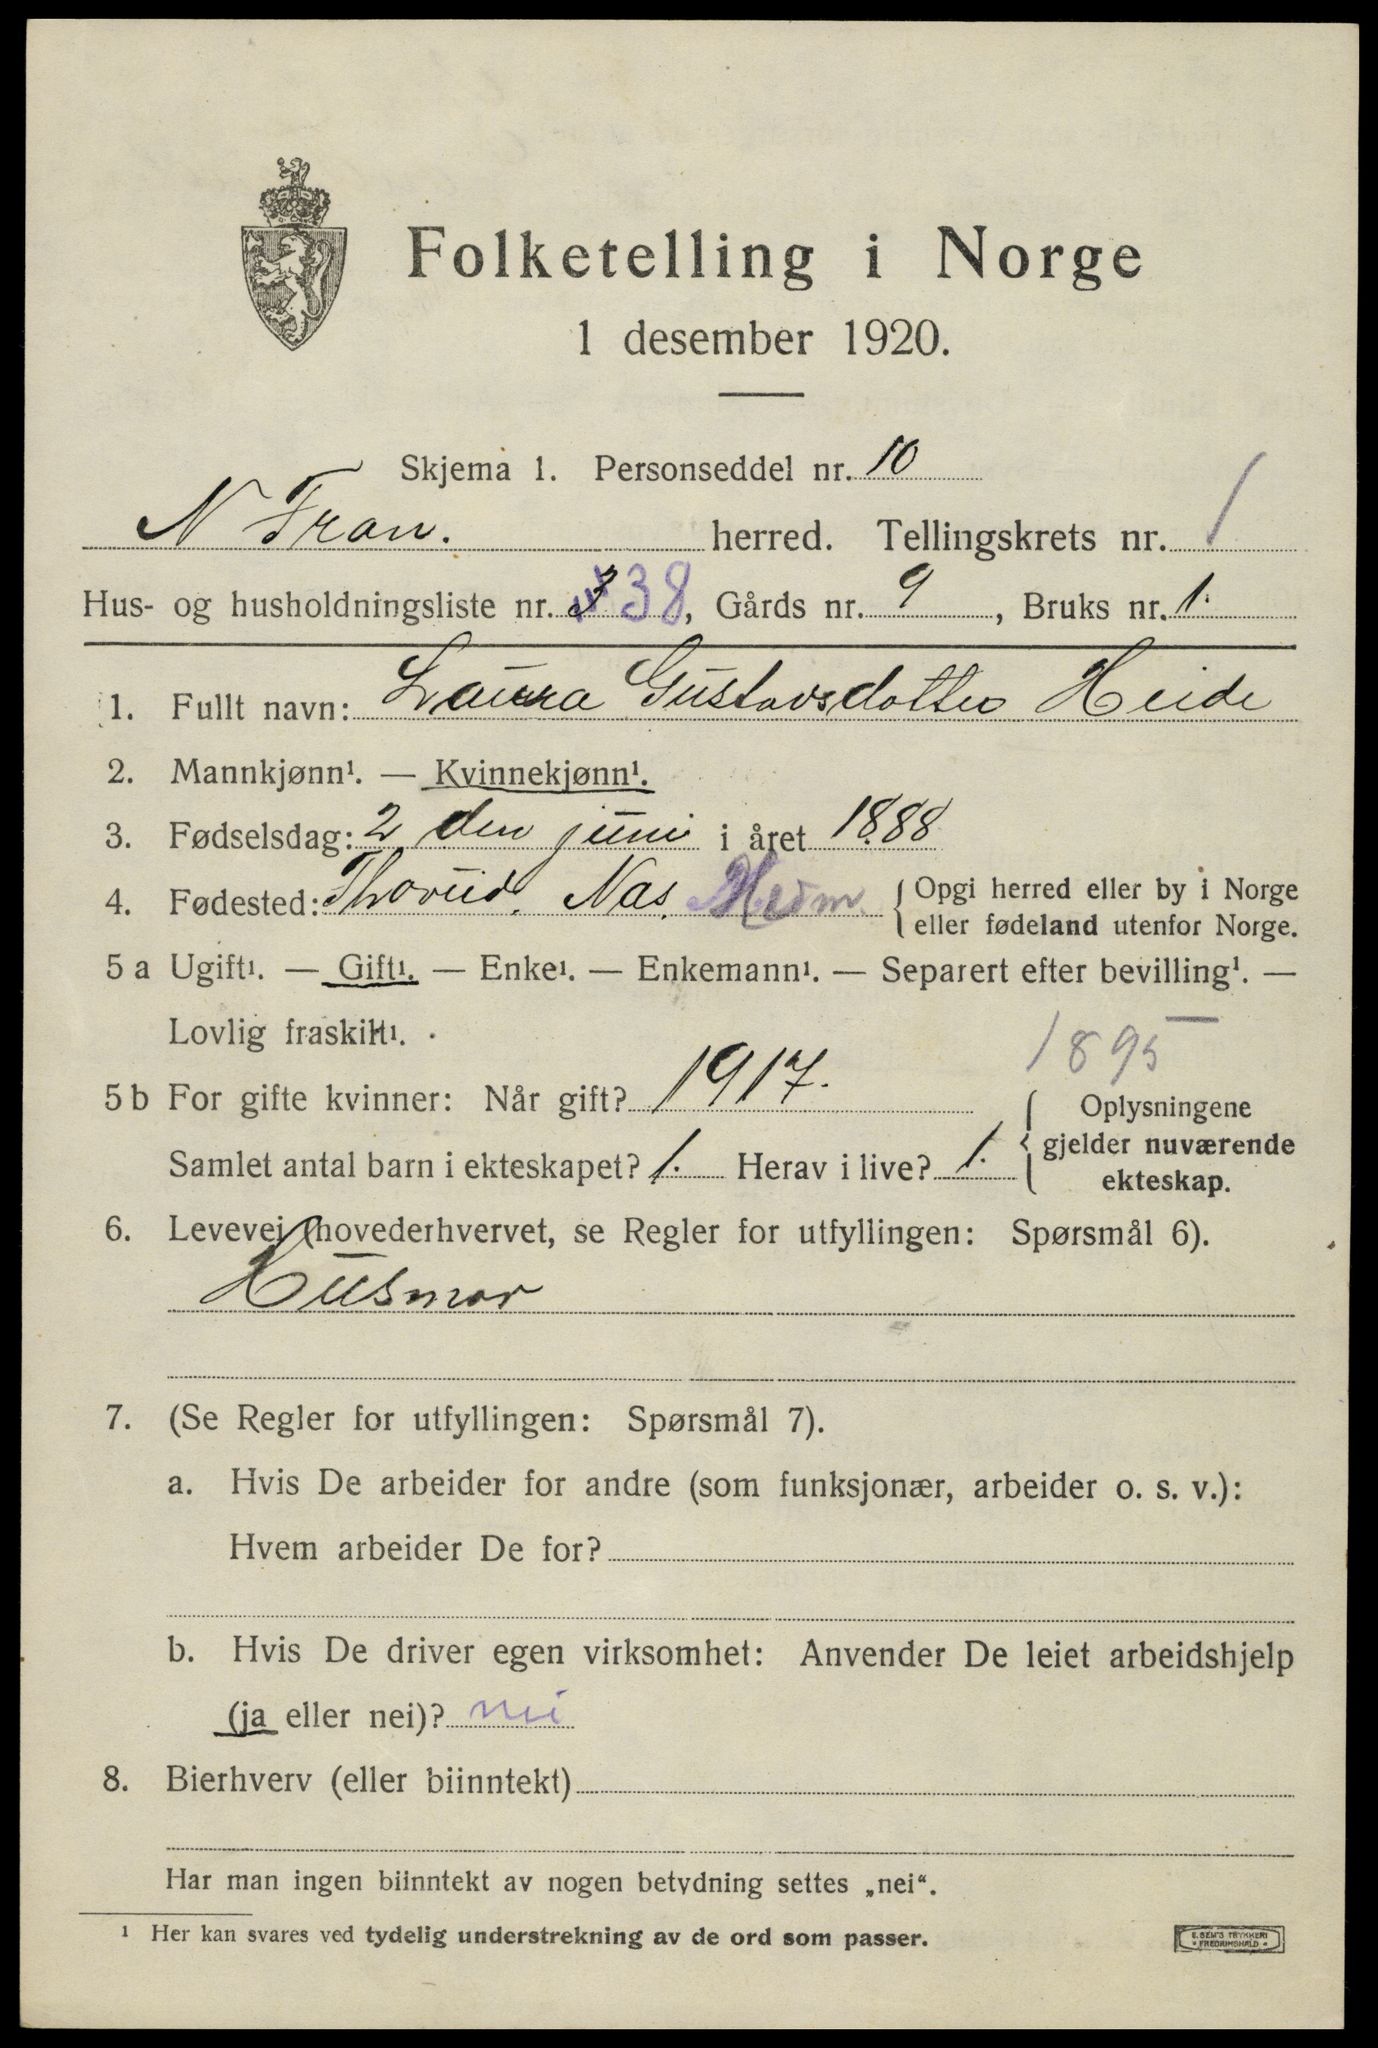 Folketelling i Norge
1 desember 1920.
Skjema 1. Personseddel nr. 10
N Fron. herred. Tellingskrets nr. 1
Hus- og husholdningsliste nr. 3 38, Gårds nr. 9, Bruks nr. 1.
1. Fullt navn: Laura Gustavsdotter Heide
2. Mannkjønn¹. — Kvinnekjønn¹.
3. Fødselsdag: 2 den juni i året 1888
4. Fødested: Thorud. Nas. Hedm. { Opgi herred eller by i Norge
eller fødeland utenfor Norge.
5 a Ugift¹. — Gift¹. — Enke¹. — Enkemann¹. — Separert efter bevilling¹. —
Lovlig fraskilt¹.
1895
5 b For gifte kvinner: Når gift? 1917. { Oplysningene
gjelder nuværende
ekteskap.
Samlet antal barn i ekteskapet? 1. Herav i live? 1.
6. Levevei (hovederhvervet, se Regler for utfyllingen: Spørsmål 6).
Husmor
7. (Se Regler for utfyllingen: Spørsmål 7).
a. Hvis De arbeider for andre (som funksjonær, arbeider o. s. v.):
Hvem arbeider De for?
b. Hvis De driver egen virksomhet: Anvender De leiet arbeidshjelp
(ja eller nei)? nei
8. Bierhverv (eller biinntekt)
Har man ingen biinntekt av nogen betydning settes „nei“.
¹ Her kan svares ved tydelig understrekning av de ord som passer.
E. SEM'S TRYKKERI
FREDRIKSHALD